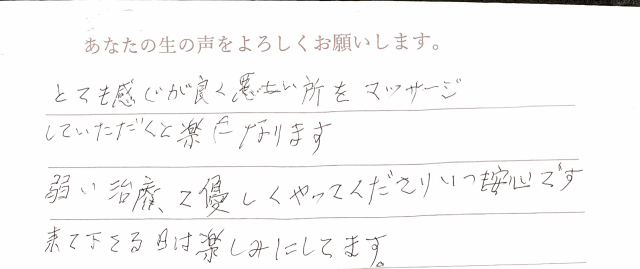 あなたの生の声をよろしくお願いします。
とても感じが良く悪い所をマッサージ
していただくと楽になります
弱い治療で優しくやってくださり安心です
来て下さる日は楽しみにしてます。